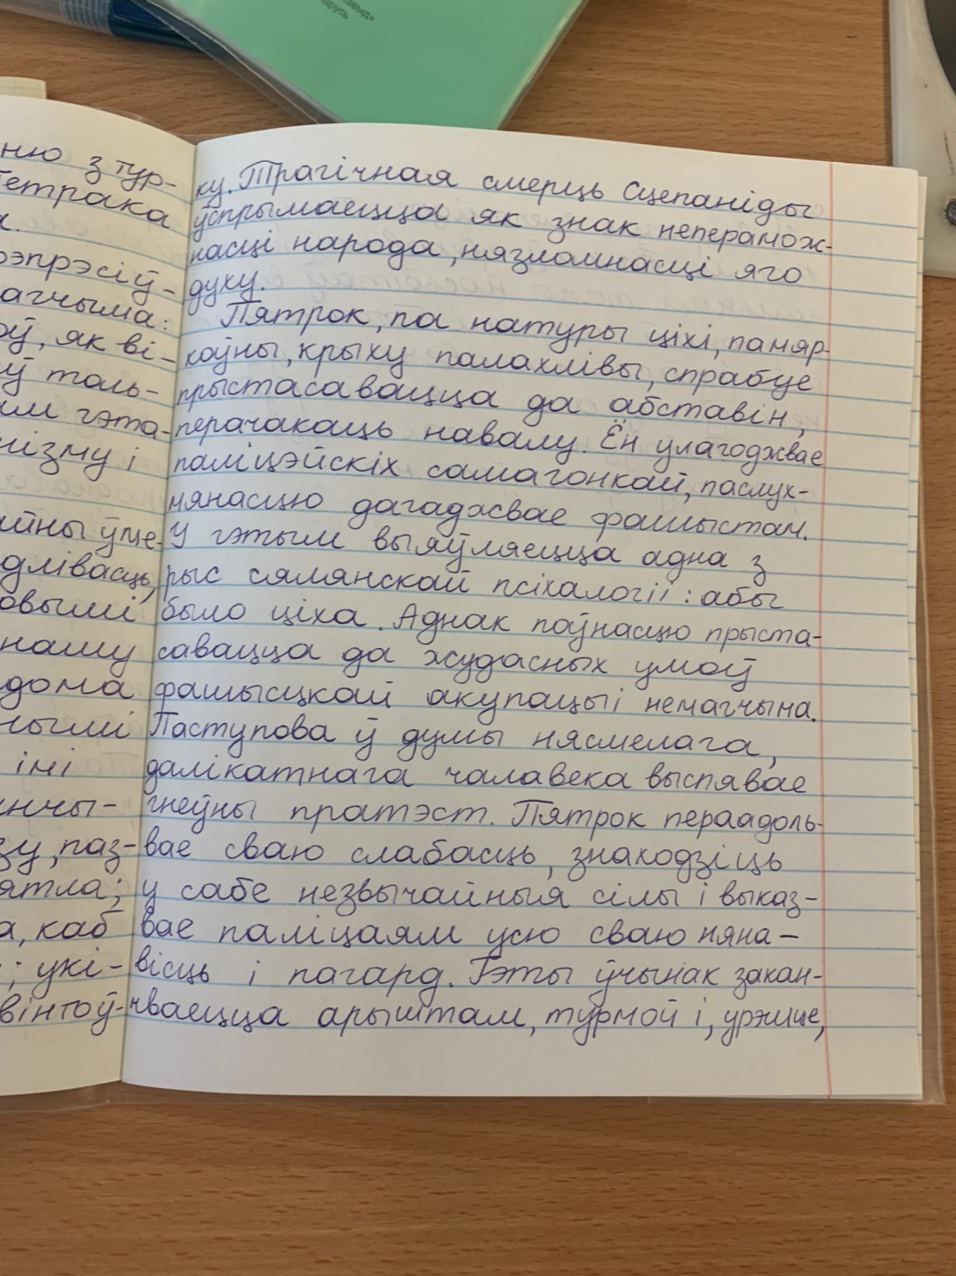 ню з тур-
Петрака
рэпрэсіў-
магчыма:
оў, як ві-
ў толь-
ым гэта-
нізму і
йны ўце-
длівасць,
овымі,
нашу
дома
ным і
імі
інчы-
зу, паз-
ятла;
а, каб
; укі-
вінтоў-
ку. Трагічная смерць Сцепаніды
ўспрымаецца як знак неперамож-
насці народа, нязломнасці яго
духу.
Пятрок, па натуры ціхі, памяр-
коўны, крыху палахлівы, спрабуе
прыстасавацца да абставін,
перачакаць навалу. Ён улагоджвае
паліцэйскіх самагонкай, паслух-
мянасцю дагаджвае фашыстам.
У гэтым выяўляецца адна з
рыс сялянскай псіхалогіі: абы
было ціха. Аднак поўнасцю прыста-
савацца да жудасных умоў
фашысцкай акупацыі немагчына.
Паступова ў думы нясмелага,
далікатнага чалавека выспявае
гнеўны пратэст. Пятрок пераадоль-
вае сваю слабасць, знаходзіць
у сабе незвычайныя сілы і выказ-
вае паліцаям усю сваю няна-
вісць і пагард. Гэты ўчынак закан-
чваецца арыштам, турмой і, урэшце,